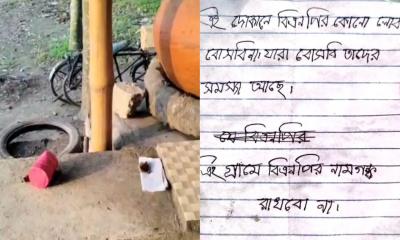 এই দোকানে বিএনপির কোনো লোক
বোসবিনা, যারা বোসবি তাদের
সমস্যা আছে।
যে বিএনপির
এই গ্রামে বিএনপির নামগন্ধ
রাখবো না।